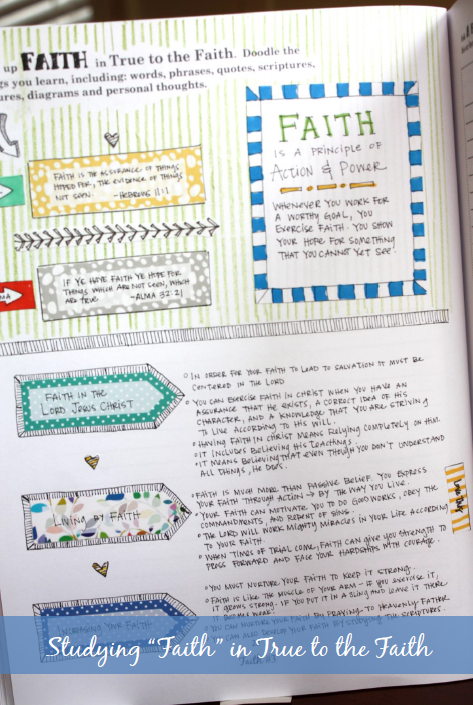 up FAITH in True to the Faith. Doodle the
gs you learn, including: words, phrases, quotes, scriptures,
ures, diagrams and personal thoughts.
FAITH IS THE ASSURANCE OF THINGS
HOPED FOR, THE EVIDENCE OF THINGS
NOT SEEN. -HEBREWS 11:1
IF YE HAVE FAITH YE HOPE FOR
THINGS WHICH ARE NOT SEEN, WHICH
ARE TRUE. -ALMA 32:21
MA
FAITH
IS A PRINCIPLE OF
ACTION & POWER
WHENEVER YOU WORK FOR
A WORTHY GOAL, YOU
EXERCISE FAITH. YOU SHOW
YOUR HOPE FOR SOMETHING
THAT YOU CANNOT YET SEE!
FAITH IN THE
LORD JESUS CHRIST
IN ORDER FOR YOUR FAITH TO LEAD TO SALVATION IT MUST BE
CENTERED IN THE LORD
YOU CAN EXERCISE FAITH IN CHRIST WHEN YOU HAVE AN
ASSURANCE THAT HE EXISTS, A CORRECT IDEA OF HIS
CHARACTER, AND A KNOWLEDGE THAT YOU ARE STRIVING
TO LIVE ACCORDING TO HIS WILL.
HAVING FAITH IN CHRIST MEANS RELYING COMPLETELY ON HIM
IT INCLUDES BELIEVING HIS TEACHINGS
IT MEANS BELIEVING THAT EVEN THOUGH YOU DON'T UNDERSTAND
ALL THINGS, HE DOES.
LIVING BY FAITH
FAITH IS MUCH MORE THAN PASSIVE BELIEF. YOU EXPRESS
YOUR FAITH THROUGH ACTION → BY THE WAY YOU LIVE.
YOUR FAITH CAN MOTIVATE YOU TO DO GOOD WORKS, OBEY THE
COMMANDMENTS, AND REPENT OF SINS.
THE LORD WILL WORK MIGHTY MIRACLES IN YOUR LIFE ACCORDING
TO YOUR FAITH.
WHEN TIMES OF TRIAL COME, FAITH CAN GIVE YOU STRENGTH TO
PRESS FORWARD AND FACE YOUR HARDSHIPS WITH COURAGE.
INCREASING YOUR FAITH
YOU MUST NURTURE YOUR FAITH TO KEEP IT STRONG.
FAITH IS LIKE THE MUSCLE OF YOUR ARM - IF YOU EXERCISE IT,
IT GROWS STRONG. IF YOU PUT IT IN A SLING AND LEAVE IT THERE
IT BECOMES WEAK.
YOU CAN NURTURE YOUR FAITH BY PRAYING TO HEAVENLY FATHER
YOU CAN ALSO DEVELOP YOUR FAITH BY STUDYING THE SCRIPTURES.
Studying "Faith" in True to the Faith
Faith #3